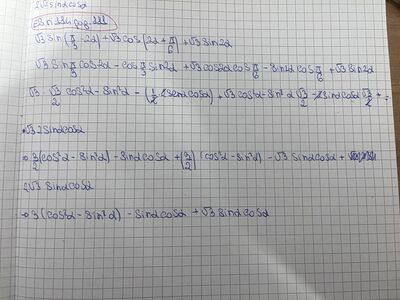 2√2 sinαcosα
ES n 334 pag. 881
√3 sin(π/3 - 2α) + √3 cos(2α + π/6) + √3 sin2α
√3 sin π/3 cos2α - cos π/3 sin2α + √3 cos2α cos π/6 - sin2α cos π/6 + √3 sin2α
√3 · √3/2 cos²α - sin²α - (1/2 2senαcosα) + √3 cos²α - sin²α √3/2 - 2sinαcosα √3/2 +
+√3 2sinαcosα
⇒ 3/2 (cos²α - sin²α) - sinαcosα + (3/2) (cos²α - sin²α) - √3 sinαcosα +
2√3 sinαcosα
⇒ 3 (cos²α - sin²α) - sinαcosα + √3 sinαcosα